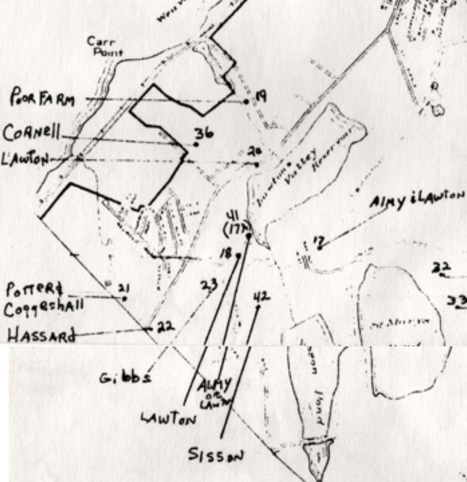 Carr
Point
POOR FARM
19
CORNELL
36
LAWTON
20
Lawton
Valley Reservoir
ALMY & LAWTON
41
(17)
17
18
POTTER &
COGGESHALL
21
23
42
32
33
HASSARD
22
St Marys
Pond
Gibbs
ALMY
OR
LAWTON
LAWTON
SISSON